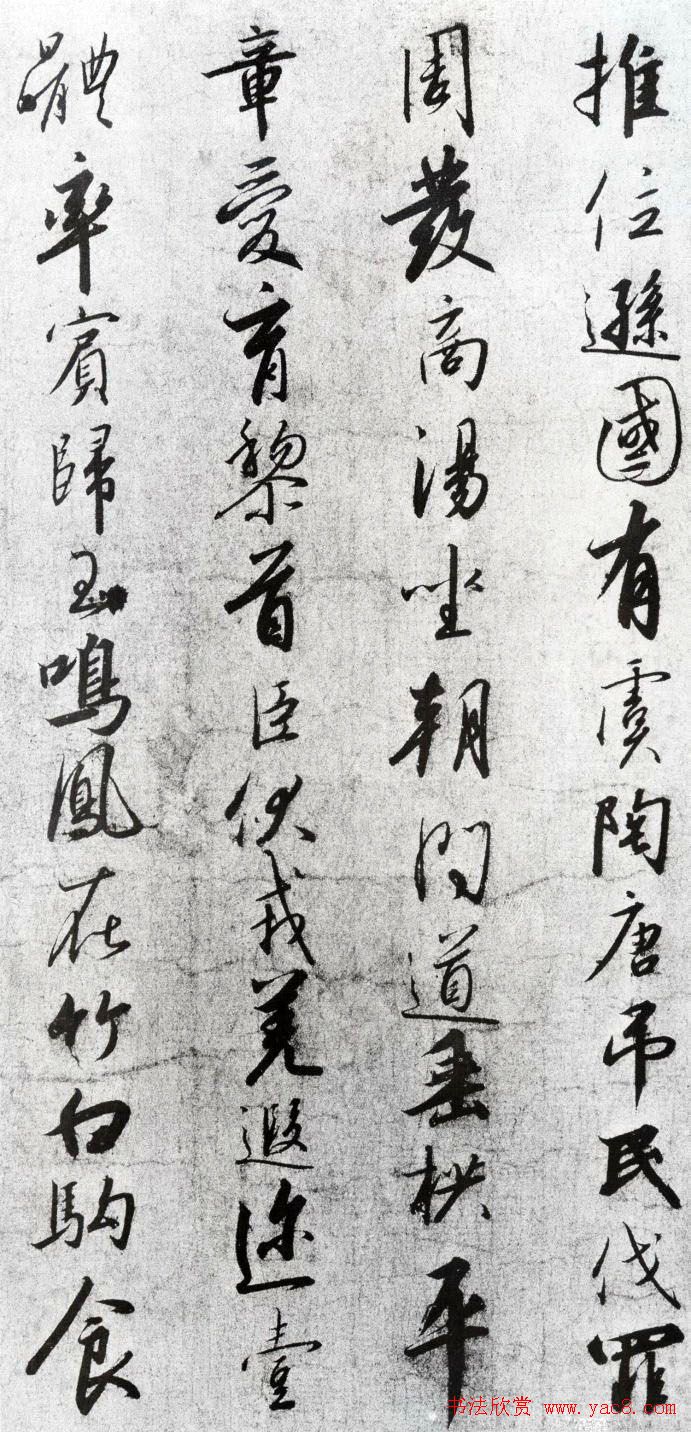 推位遜國有虞陶唐吊民伐罪
周發商湯坐朝問道垂拱平
章愛育黎首臣伏戎羌遐迩壹
體率賓歸王鳴鳳在竹白駒食
书法欣赏 www.yac8.com